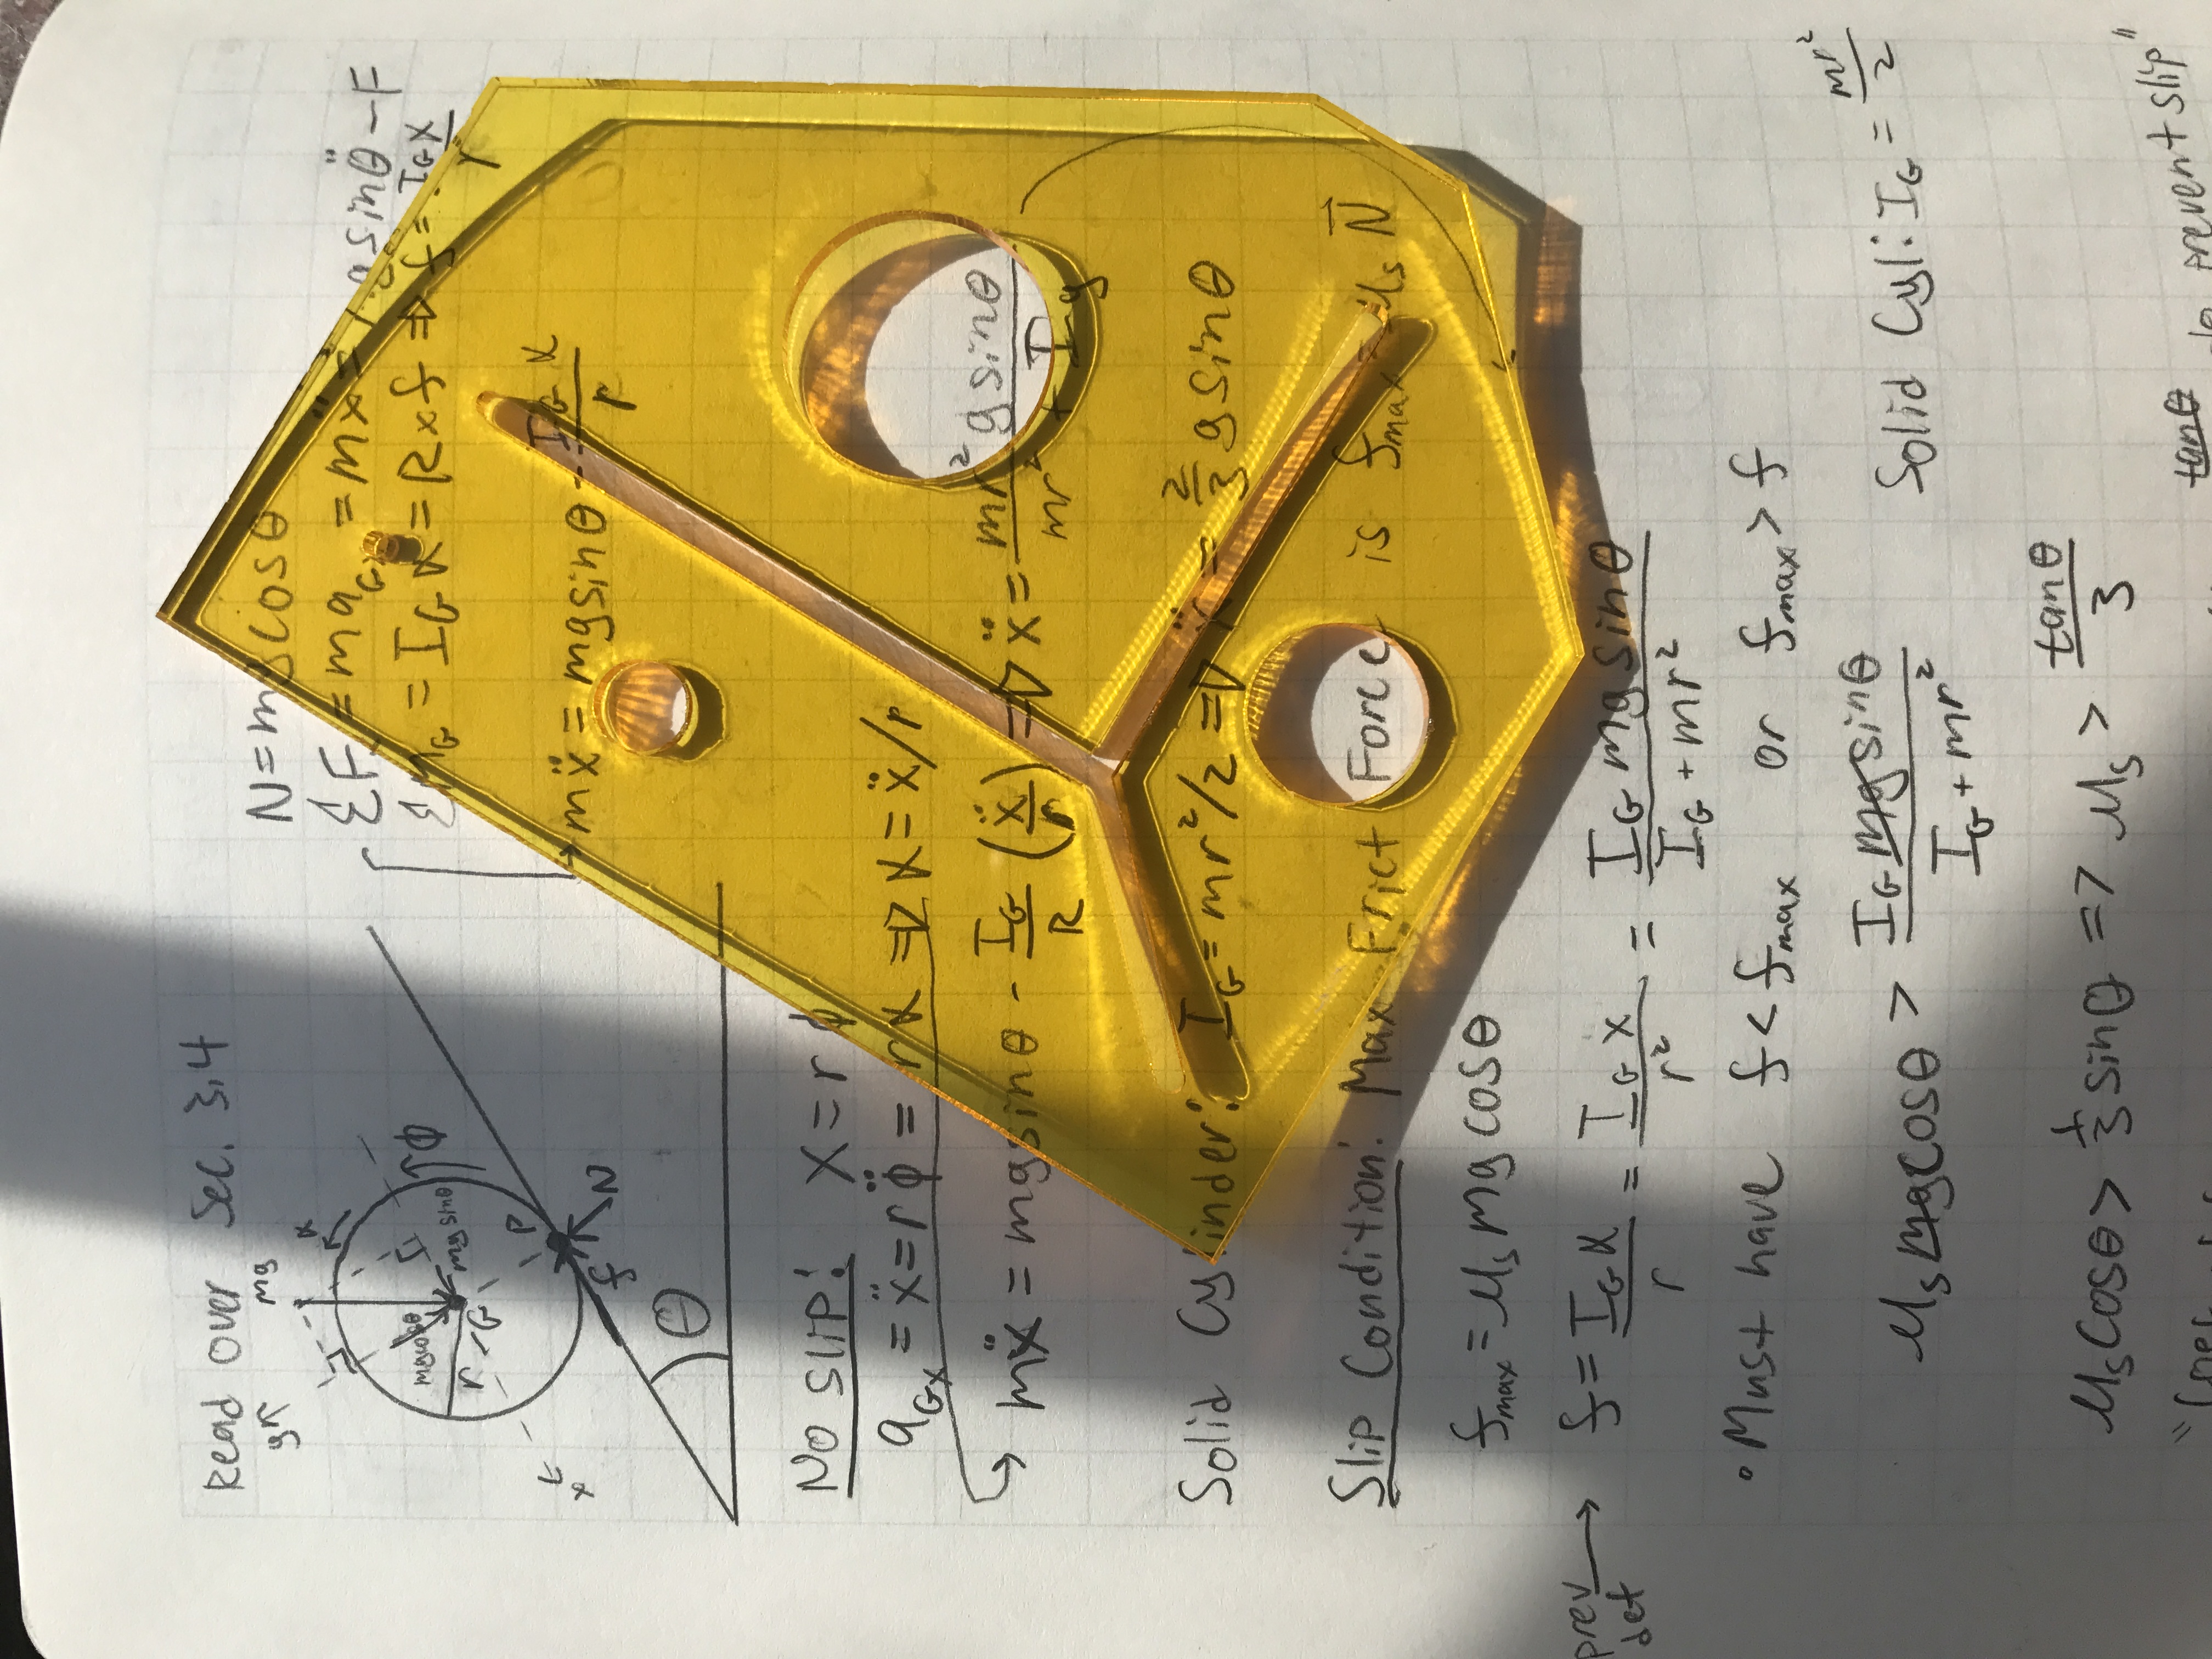 Read Over Sec. 3.4
y
mg
α
mgcosθ
mgsinθ
ϕ
r
G
P
x
f
N
θ
N = mgcosθ
ΣF = ma_Gx = mẍ = mgsinθ̈ - F
ΣM_G = I_G α = R × f ⇒ f = I_G α / r
mẍ = mgsinθ - I_G α / r
No slip! X = rϕ
a_Gx = ẍ = rϕ̈ = rα ⇒ α = ẍ/r
mẍ = mgsinθ - I_G/R (ẍ/r) ⇒ ẍ = mr²gsinθ / mr² + Ig
Solid Cylinder: I_G = mr²/2 ⇒ ẍ = 2/3 gsinθ
Slip Condition: Max Frict Force is f_max = μ_s N⃗
f_max = μ_s mgcosθ
prev det → f = I_G α / r = I_G x / r² = I_G mgsinθ / I_G + mr²
• Must have f < f_max or f_max > f
μ_s mgcosθ > I_G mgsinθ / I_G + mr² Solid Cyl: I_G = mr²/2
μ_s cosθ > 1/3 sinθ => μ_s > tanθ/3
tanθ to prevent slip"